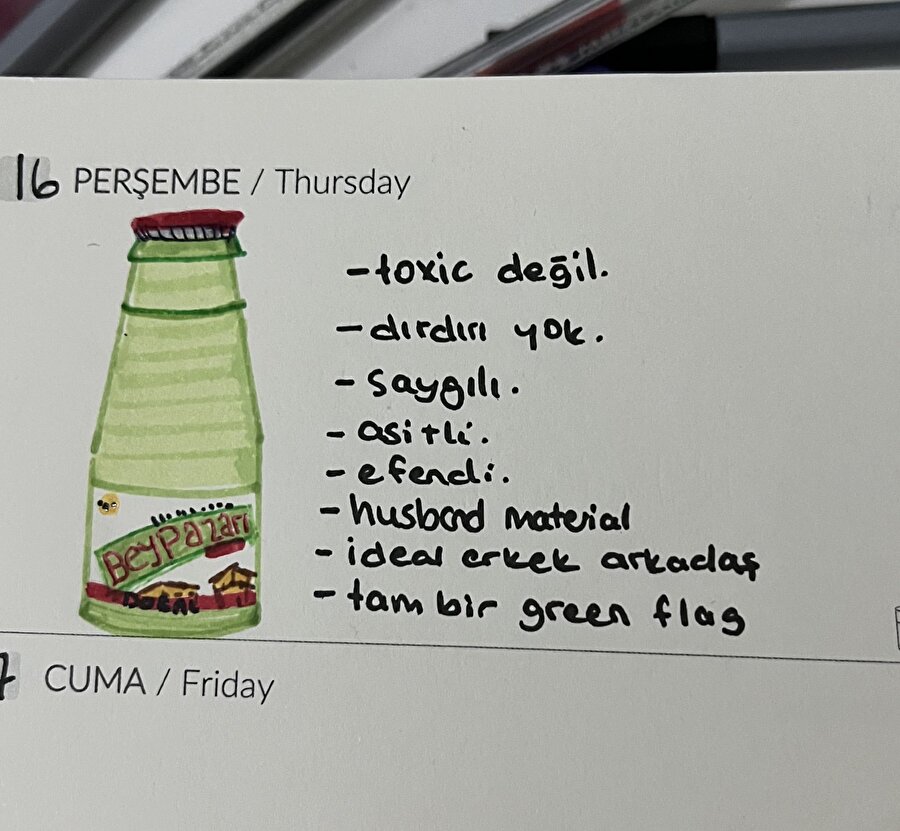 16 PERŞEMBE / Thursday
- toxic değil.
- dırdırı yok.
- saygılı.
- asitli.
- efendi.
- husband material
- ideal erkek arkadaş
- tam bir green flag
BeyPazarı
DOĞAL
7 CUMA / Friday